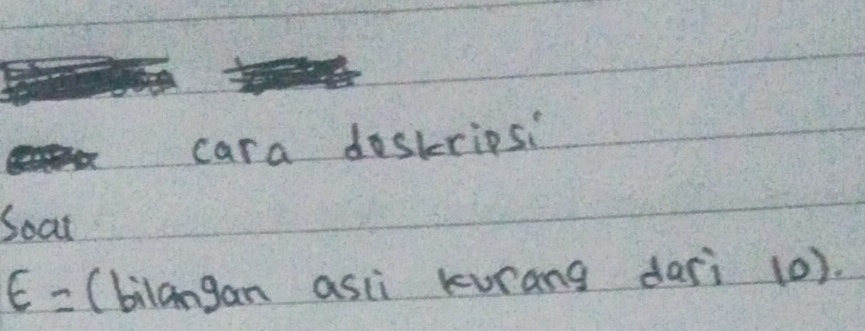 cara deskripsi
Soal
E = (bilangan asli kurang dari 10).